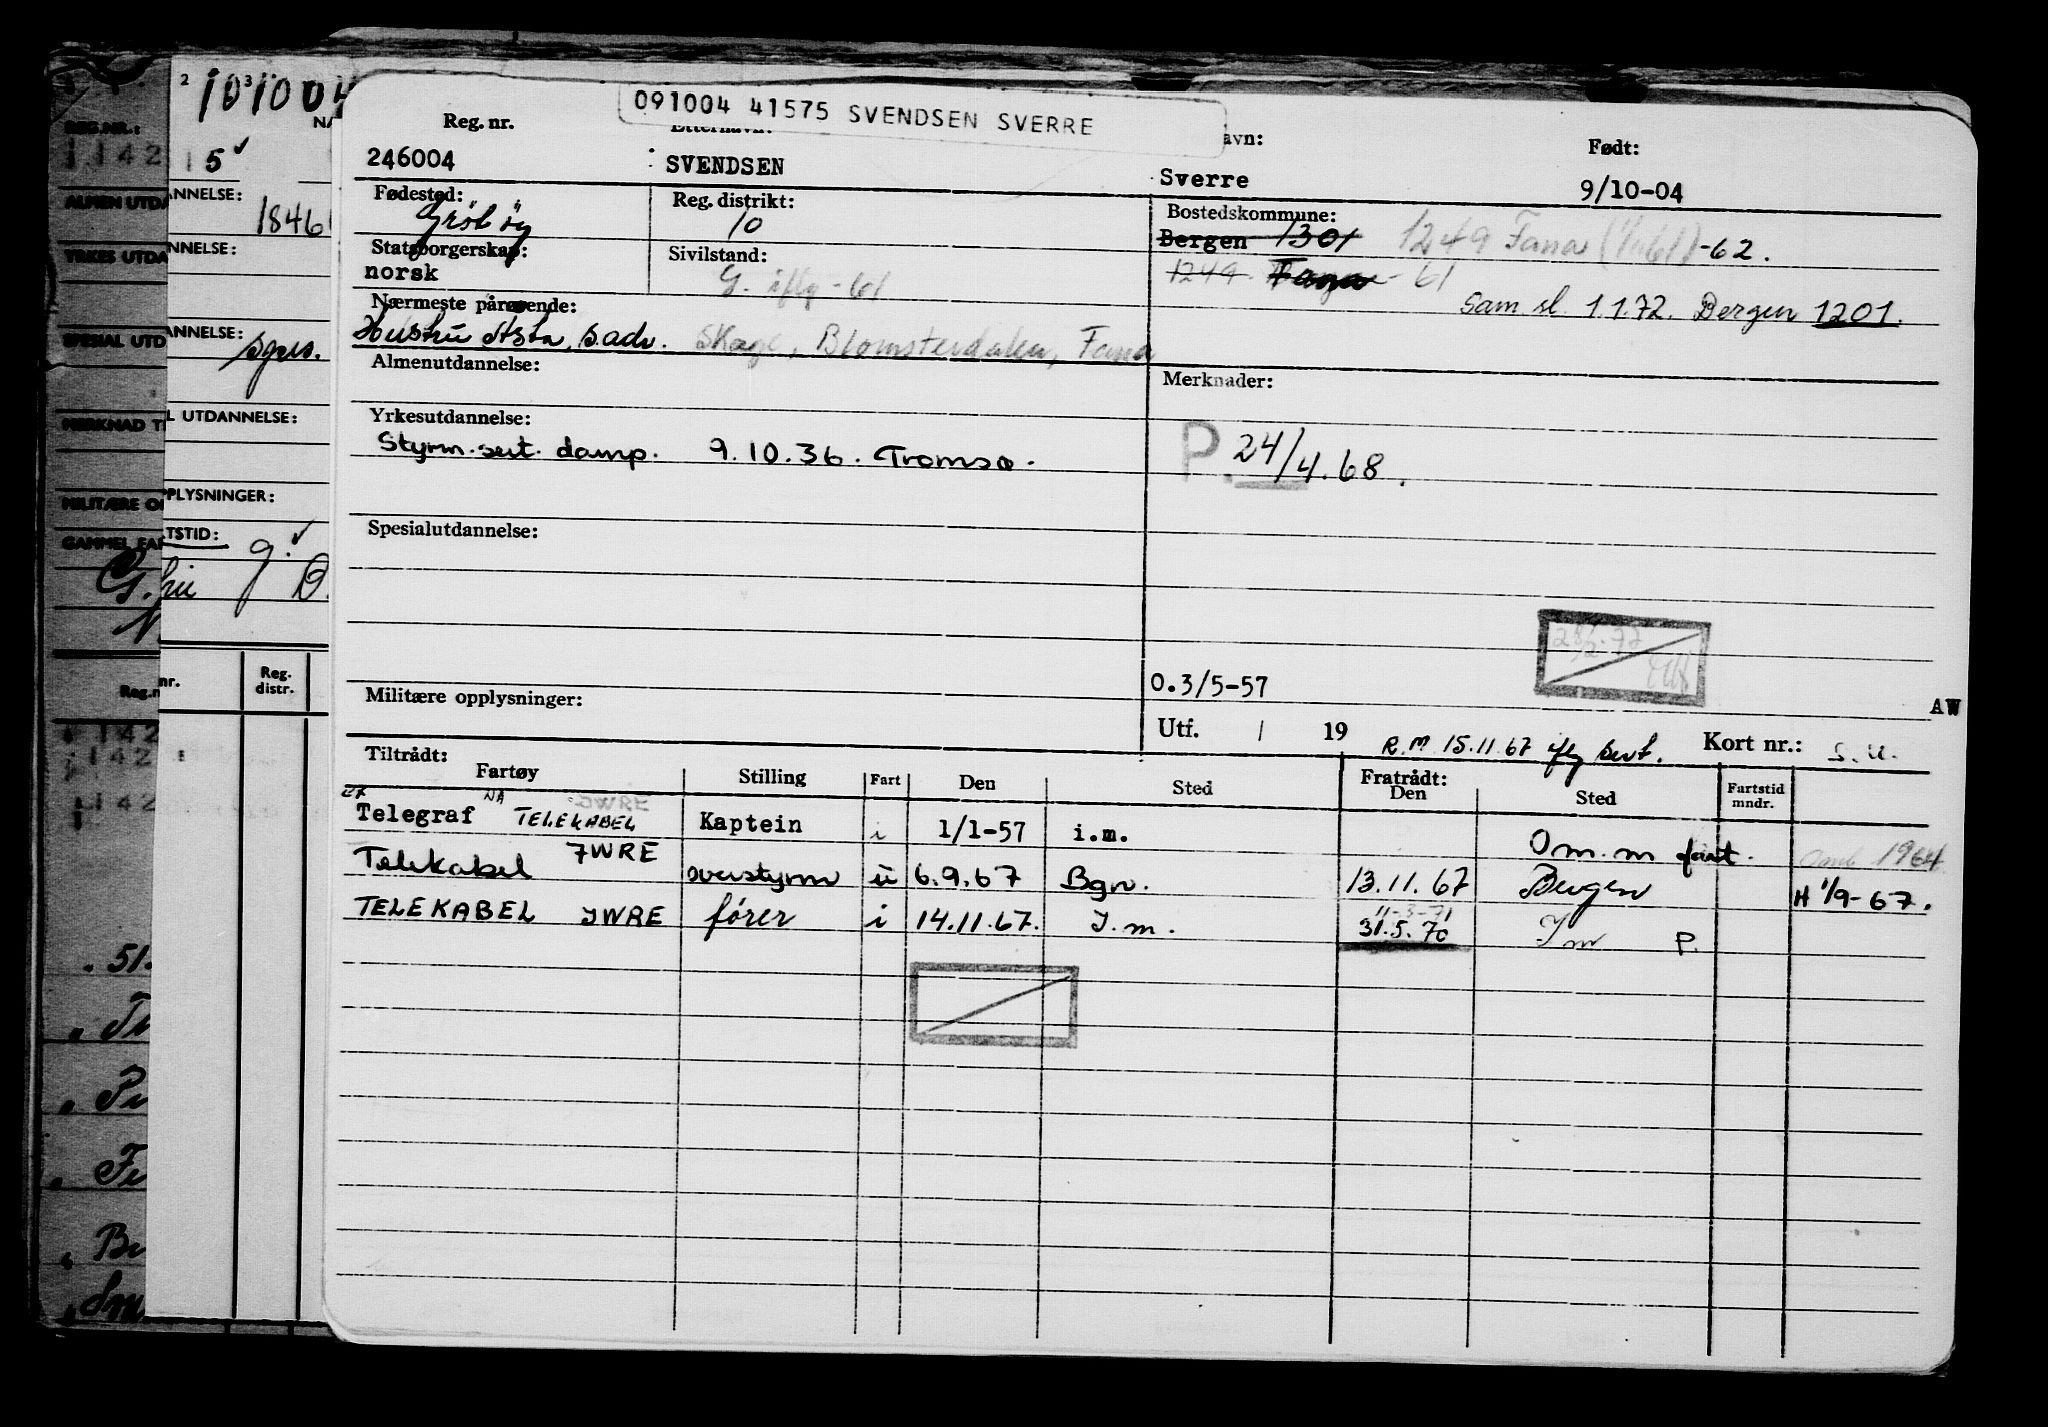 091004 41575 SVENDSEN SVERRE
Reg. nr.
avn:
Født:
246004
SVENDSEN
Sverre
9/10-04
Fødested:
Reg. distrikt:
Bostedskommune:
10
Bergen 1301 1249 Fana (1/1-61) -62.
Statsborgerskap:
Sivilstand:
norsk
G. iflg -61
1249 Fana - 61
Sam sl. 1.1.72. Bergen 1201.
Nærmeste pårørende:
Hustru Asta, s.adr. Skage, Blomsterdalen, Fana
Almenutdannelse:
Merknader:
Yrkesutdannelse:
Styrm. sert. damp. 9.10.36. Tromsø.
P. 24/4.68.
Spesialutdannelse:
O.3/5-57
AW
Militære opplysninger:
Utf. / 19
R.M 15.11.67 iflg sert.
Kort nr.: S.U.
Tiltrådt:
Fratrådt:
Fartøy Stilling Fart Den Sted Den Sted Fartstid mndr.
ex NA JWRE
Telegraf TELEKABEL Kaptein i 1/1-57 i.m. Om.m fart. 1964
Telekabel JWRE overstyrm u 6.9.67 Bgn. 13.11.67 Bergen H 1/9-67.
11-3-71
TELEKABEL JWRE fører i 14.11.67. I.m. 31.5.70 I m P.
2 3
101004
NA
5
ANNELSE:
1846
NNELSE:
ANNELSE:
L UTDANNELSE:
PPLYSNINGER:
TSTID:
nr.
Reg. distr.
REG.NR.:
142
ALMEN UTDA
YRKES UTDA
SPESIAL UTD
MERKNAD T
MILITÆRE O
GAMMEL FA
Reg.n
142
142
142
.51.